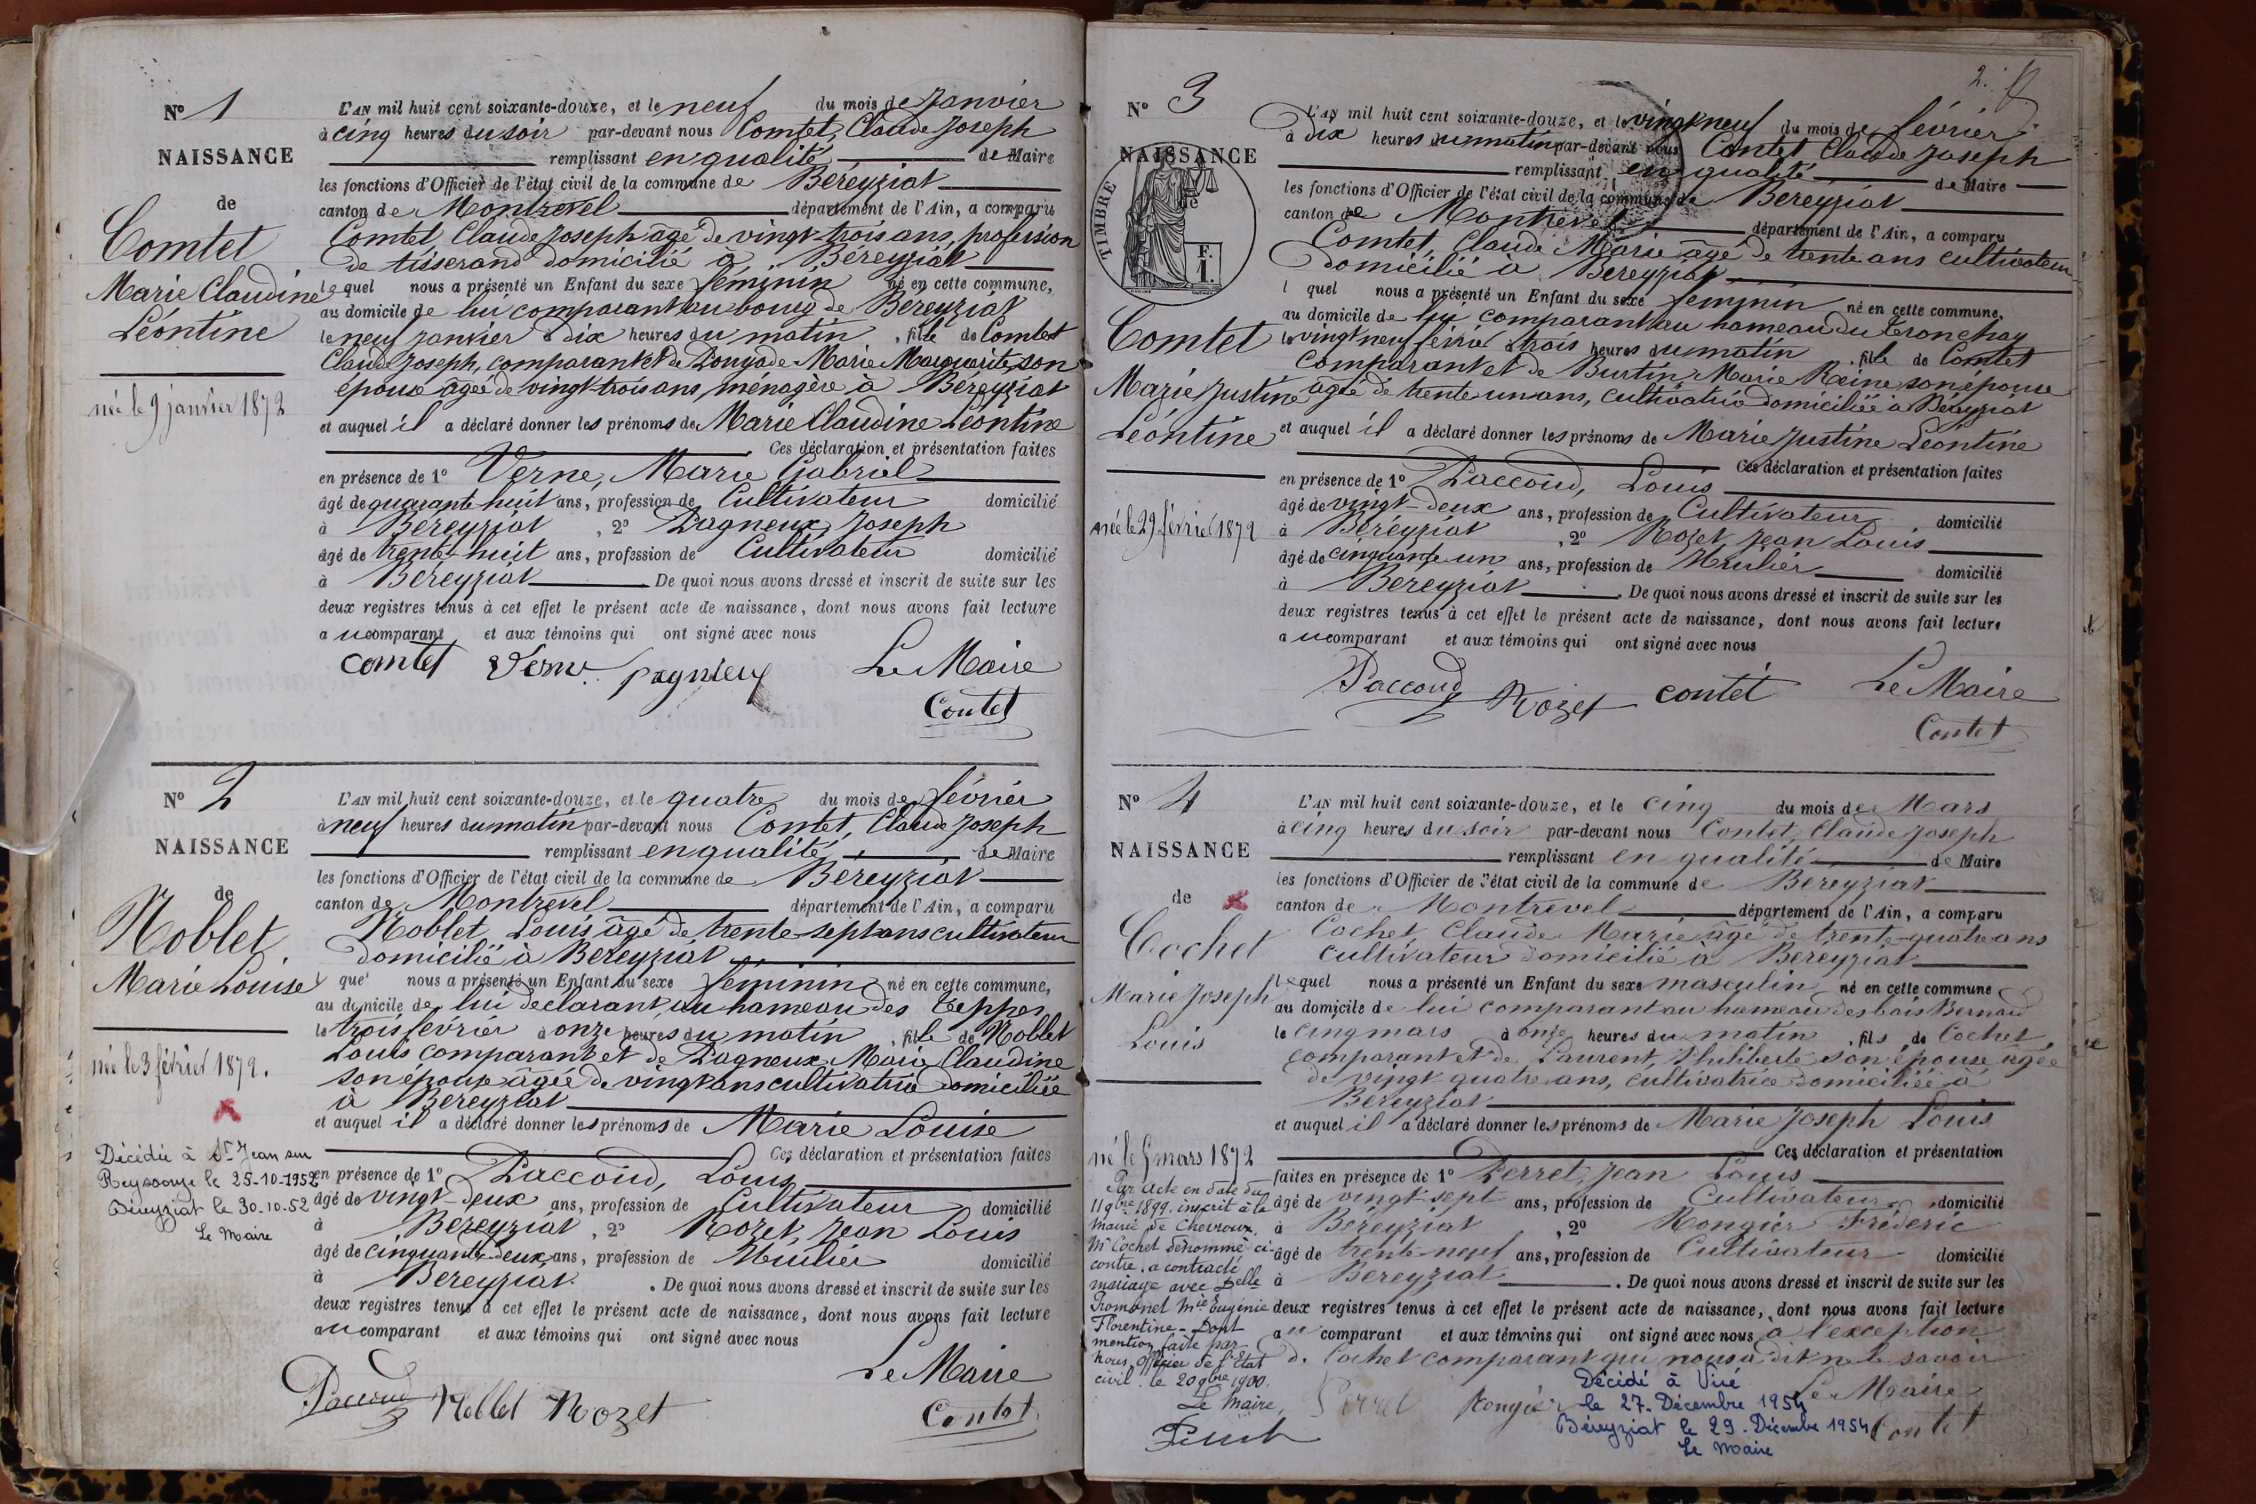 N° 1
NAISSANCE
de
Comtet
Marie Claudine
Léontine
née le 9 janvier 1872
L'AN mil huit cent soixante-douze, et le neuf du mois de Janvier
à cinq heures du soir par-devant nous Comtet, Claude Joseph
remplissant en qualité de Maire
les fonctions d'Officier de l'état civil de la commune de Béréyziat
canton de Montrevel département de l'Ain, a comparu
Comtet, Claude Joseph âgé de vingt-trois ans, profession
de tisserand domicilié à Béréyziat
lequel nous a présenté un Enfant du sexe féminin né en cette commune,
au domicile de lui comparant au bourg de Béreyziat
le neuf janvier à dix heures du matin, fille de Comtet
Claude Joseph, comparant et de Marie Marguerite, son
épouse âgée de vingt-trois ans, ménagère à Béreyziat
et auquel il a déclaré donner les prénoms de Marie Claudine Léontine
Ces déclaration et présentation faites
en présence de 1° Verne, Marie Gabriel
âgé de quarante huit ans, profession de Cultivateur domicilié
à Béreyziat, 2° Pagneux, Joseph
âgé de trente-huit ans, profession de Cultivateur domicilié
à Béréyziat De quoi nous avons dressé et inscrit de suite sur les
deux registres tenus à cet effet le présent acte de naissance, dont nous avons fait lecture
au comparant et aux témoins qui ont signé avec nous
comtet Verne pagnieux Le Maire
Contet
N° 2
NAISSANCE
de
Noblet
Marie Louise
née le 3 février 1872.
Décédée à St Jean sur
Reyssouze le 25-10-1952
Béreyziat le 30.10.52
Le Maire
L'AN mil huit cent soixante-douze, et le quatre du mois de février
à neuf heures du matin par-devant nous Comtet, Claude Joseph
remplissant en qualité de Maire
les fonctions d'Officier de l'état civil de la commune de Béréyziat
canton de Montrevel département de l'Ain, a comparu
Noblet, Louis âgé de trente-sept ans cultivateur
domicilié à Béreyziat
quel nous a présenté un Enfant du sexe féminin né en cette commune,
au domicile de lui déclarant, au hameau des Teppes
le trois février à onze heures du matin, fille de Noblet
Louis comparant et de Pagneux, Marie Claudine
son épouse âgée de vingt ans cultivatrice domiciliée
à Béreyziat
et auquel il a déclaré donner les prénoms de Marie Louise
Ces déclaration et présentation faites
en présence de 1° Paccoud, Louis
âgé de vingt-deux ans, profession de Cultivateur domicilié
à Béreyziat, 2° Rozet, Jean Louis
âgé de cinquante-deux ans, profession de Huilier domicilié
à Béreyziat. De quoi nous avons dressé et inscrit de suite sur les
deux registres tenus à cet effet le présent acte de naissance, dont nous avons fait lecture
au comparant et aux témoins qui ont signé avec nous
Le Maire
Paccoud Noblet Rozet Contet
2.
N° 3
NAISSANCE
de
TIMBRE
F.
1.
Comtet
Marie Justine
Léontine
née le 29 février 1872
L'AN mil huit cent soixante-douze, et le vingt neuf du mois de février
à dix heures du matin par-devant nous Contet Claude Joseph
remplissant en qualité de Maire
les fonctions d'Officier de l'état civil de la commune de Béreyziat
canton de Montrevel département de l'Ain, a comparu
Comtet, Claude Marie âgé de trente ans cultivateur
domicilié à Béreyziat
l quel nous a présenté un Enfant du sexe féminin né en cette commune,
au domicile de lui comparant au hameau du Tronchay
le vingt neuf février à trois heures du matin, fille de Comtet
comparant et de Burtin Marie Reine son épouse
âgée de trente un ans, cultivatrice domiciliée à Béreyziat
et auquel il a déclaré donner les prénoms de Marie Justine Léontine
Ces déclaration et présentation faites
en présence de 1° Paccoud, Louis
âgé de vingt-deux ans, profession de Cultivateur domicilié
à Béreyziat, 2° Rozet Jean Louis
âgé de cinquante un ans, profession de Huilier domicilié
à Béreyziat. De quoi nous avons dressé et inscrit de suite sur les
deux registres tenus à cet effet le présent acte de naissance, dont nous avons fait lecture
au comparant et aux témoins qui ont signé avec nous
Paccoud Rozet contet Le Maire
Contet
N° 4
NAISSANCE
de
Cochet
Marie Joseph
Louis
né le 5 mars 1872
Par acte en date du
11 9bre 1899. inscrit à la
mairie de Chevroux.
Mr Cochet dénommé ci-
contre, a contracté
mariage avec Delle
Promonet Mie Eugénie
Florentine - Dont
mention faite par
nous Officier de l'Etat
civil. le 20 9bre 1900.
Le Maire,
L'AN mil huit cent soixante-douze, et le cinq du mois de Mars
à cinq heures du soir par-devant nous Contet, Claude Joseph
remplissant en qualité de Maire
les fonctions d'Officier de l'état civil de la commune de Béreyziat
canton de Montrevel département de l'Ain, a comparu
Cochet, Claude Marie âgé de trente-quatre ans
cultivateur domicilié à Béreyziat
lequel nous a présenté un Enfant du sexe masculin né en cette commune
au domicile de lui comparant au hameau des bois Bernoud
le cinq mars à onze heures du matin, fils de Cochet
comparant et de Laurent, Philiberte son épouse âgée
de vingt quatre ans, cultivatrice domiciliée à
Béreyziat
et auquel il a déclaré donner les prénoms de Marie Joseph Louis
Ces déclaration et présentation
faites en présence de 1° Perret, Jean Louis
âgé de vingt-sept ans, profession de Cultivateur domicilié
à Béréyziat, 2° Rongier Fréderic
âgé de trente-neuf ans, profession de Cultivateur domicilié
à Béreyziat. De quoi nous avons dressé et inscrit de suite sur les
deux registres tenus à cet effet le présent acte de naissance, dont nous avons fait lecture
au comparant et aux témoins qui ont signé avec nous à l'exception
de Cochet comparant qui nous a dit ne le savoir
Perret Rongier Le Maire
Contet
Décédé à Viré
le 27. Décembre 1954
Béreyziat le 29. Décembre 1954
Le Maire